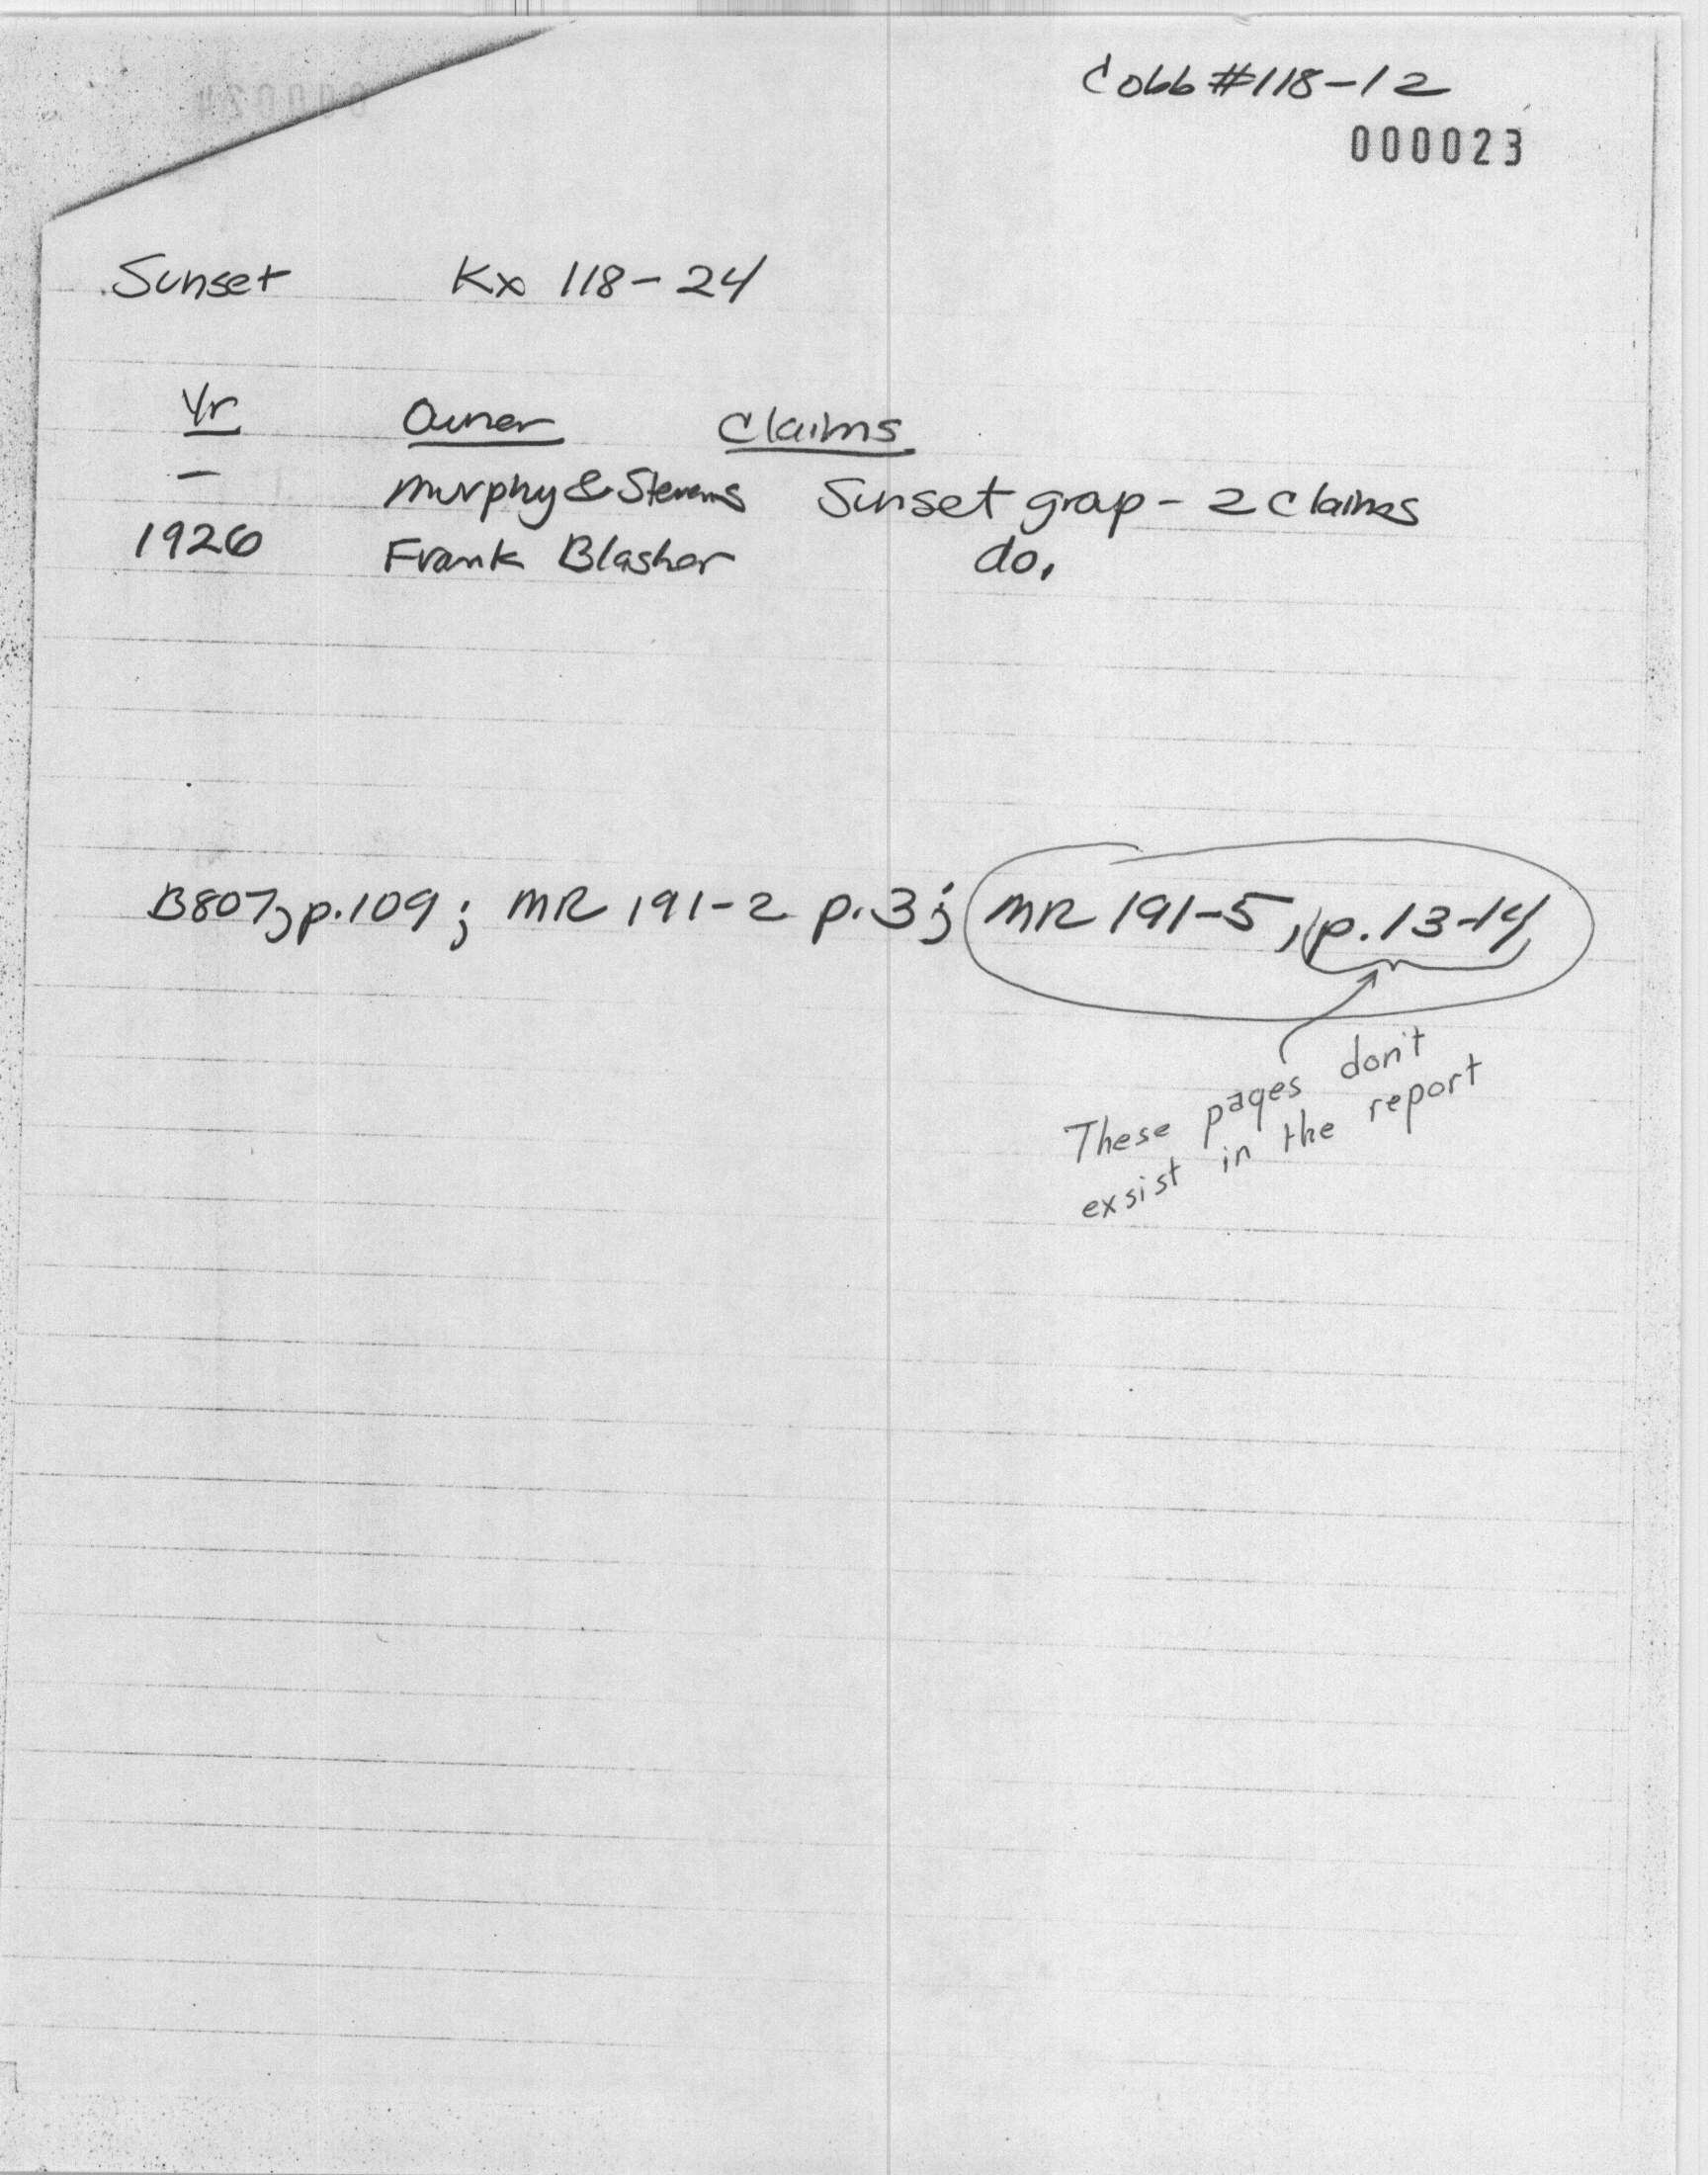 Cobb #118-12
000023
Sunset Kx 118-24
Yr Owner Claims
— Murphy & Stevens Sunset group - 2 claims
1926 Frank Blasher do.
B807, p.109; MR 191-2 p.3; MR 191-5, p.13-14
These pages don't
exsist in the report